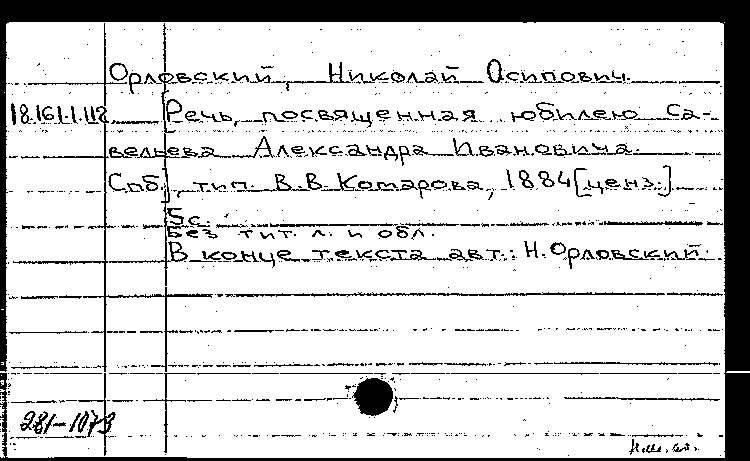 Орловский, Николай Осипович.
18.161.1.112 [Речь, посвященная юбилею Са-
вельева Александра Ивановича.
Спб.], тип. В.В. Комарова, 1884 [ценз.]
5с.
Без тит. л. и обл.
В конце текста авт.: Н. Орловский.
281-1073